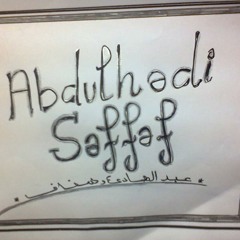 Abdulhədi
Səffəf
عبد الهادي صفاف